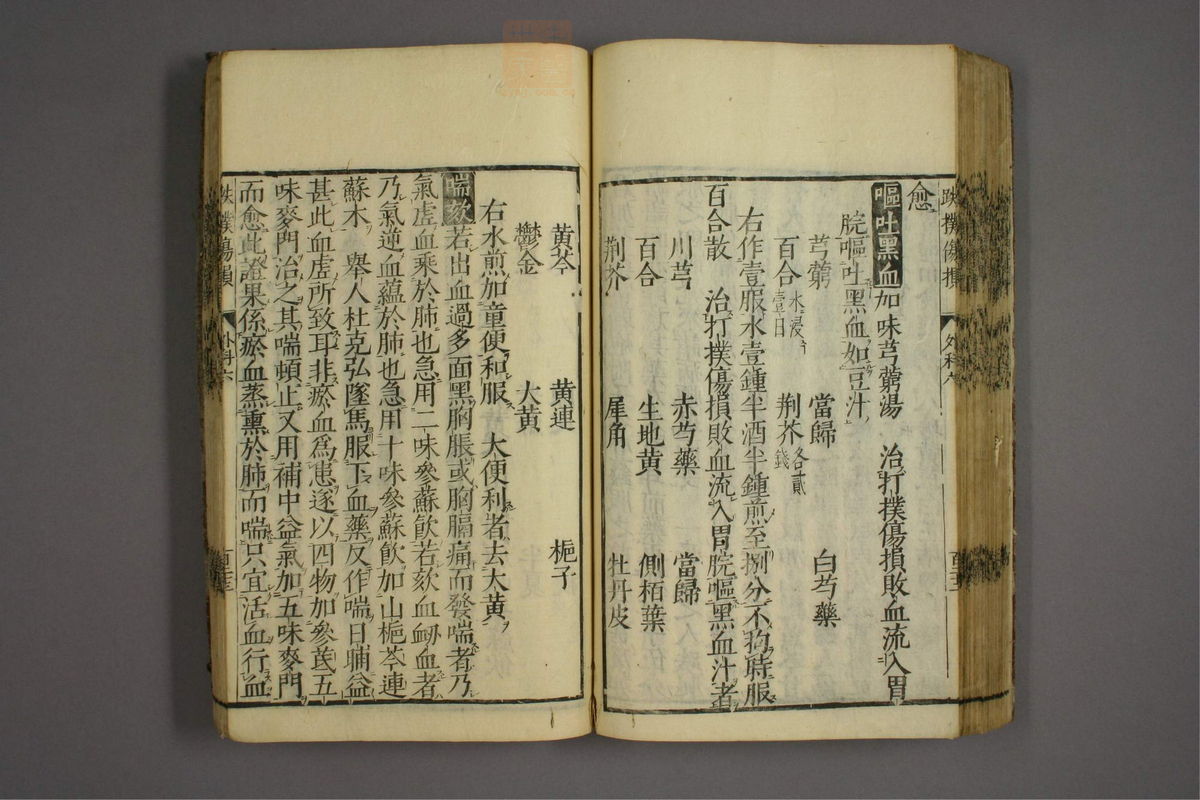 跌撲傷損
外科六
愈
嘔吐黑血加味芎藭湯　治打撲傷損敗血流入胃
脘嘔吐黑血如豆汁
芎藭　當歸　白芍藥
百合水浸壹日　荆芥各貳錢
右作壹服水壹鍾半酒半鍾煎至捌分不拘時服
百合散　治打撲傷損敗血流入胃脘嘔黑血汁者
川芎　赤芍藥　當歸
百合　生地黄　側栢葉
荆芥　犀角　牡丹皮
黄芩　黄連　梔子
鬱金　大黄
右水煎加童便和服　大便利者去大黄
喘欬若出血過多面黑胸脹或胸膈痛而發喘者乃
氣虛血乘於肺也急用二味參蘇飲若欬血衂血者
乃氣逆血蘊於肺也急用十味參蘇飲加山梔芩連
蘇木　舉人杜克弘墜馬服下血藥反作喘日晡益
甚此血虛所致耳非瘀血爲患遂以四物加參芪五
味麥門冶之其喘頓止又用補中益氣加五味麥門
而愈此證果係瘀血蒸熏於肺而喘只宜活血行血
跌撲傷損
外科六